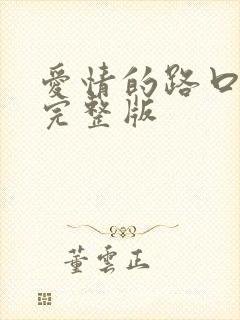 愛情的路口
完整版
董雲正